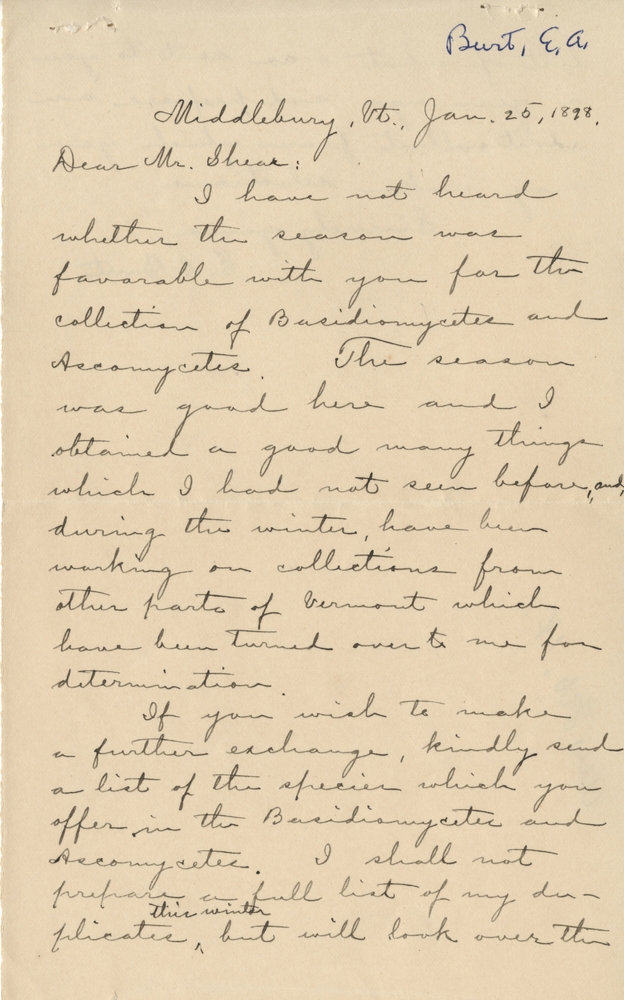 Burt, E. A.
Middlebury, Vt., Jan. 25, 1898.
Dear Mr. Shear:
I have not heard
whether the season was
favorable with you for the
collection of Basidiomycetes and
Ascomycetes. The season
was good here and I
obtained a good many things
which I had not seen before, and,
during the winter, have been
working on collections from
other parts of Vermont which
have been turned over to me for
determination.
If you wish to make
a further exchange, kindly send
a list of the species which you
offer in the Basidiomycetes and
Ascomycetes. I shall not
prepare a full list of my du-
this winter
plicates, but will look over the